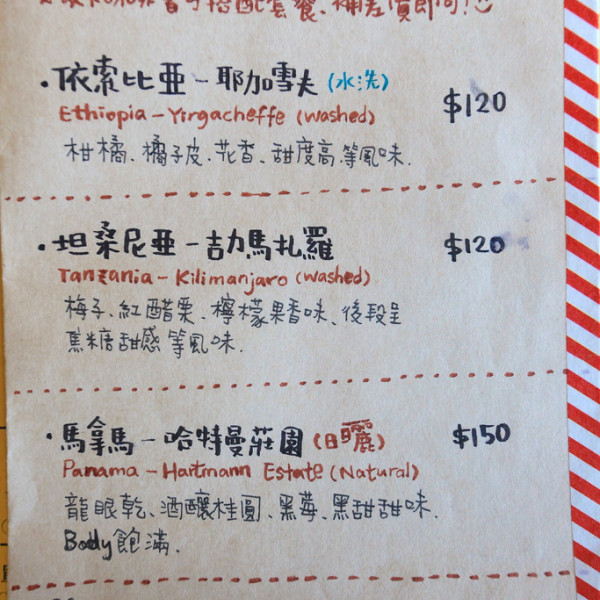 搭配套餐、補差價即可!
·依索比亞-耶加雪夫(水洗) $120
Ethiopia-Yirgacheffe (washed)
柑橘、橘子皮、花香、甜度高等風味.
·坦桑尼亞-吉力馬扎羅 $120
Tanzania-Kilimanjaro (washed)
梅子、紅醋栗、檸檬果香味、後段呈
焦糖甜感等風味.
·馬拿馬-哈特曼莊園(日曬) $150
Panama-Hartmann Estate (Natural)
龍眼乾、酒釀桂圓、黑莓、黑甜甜味.
Body飽滿.